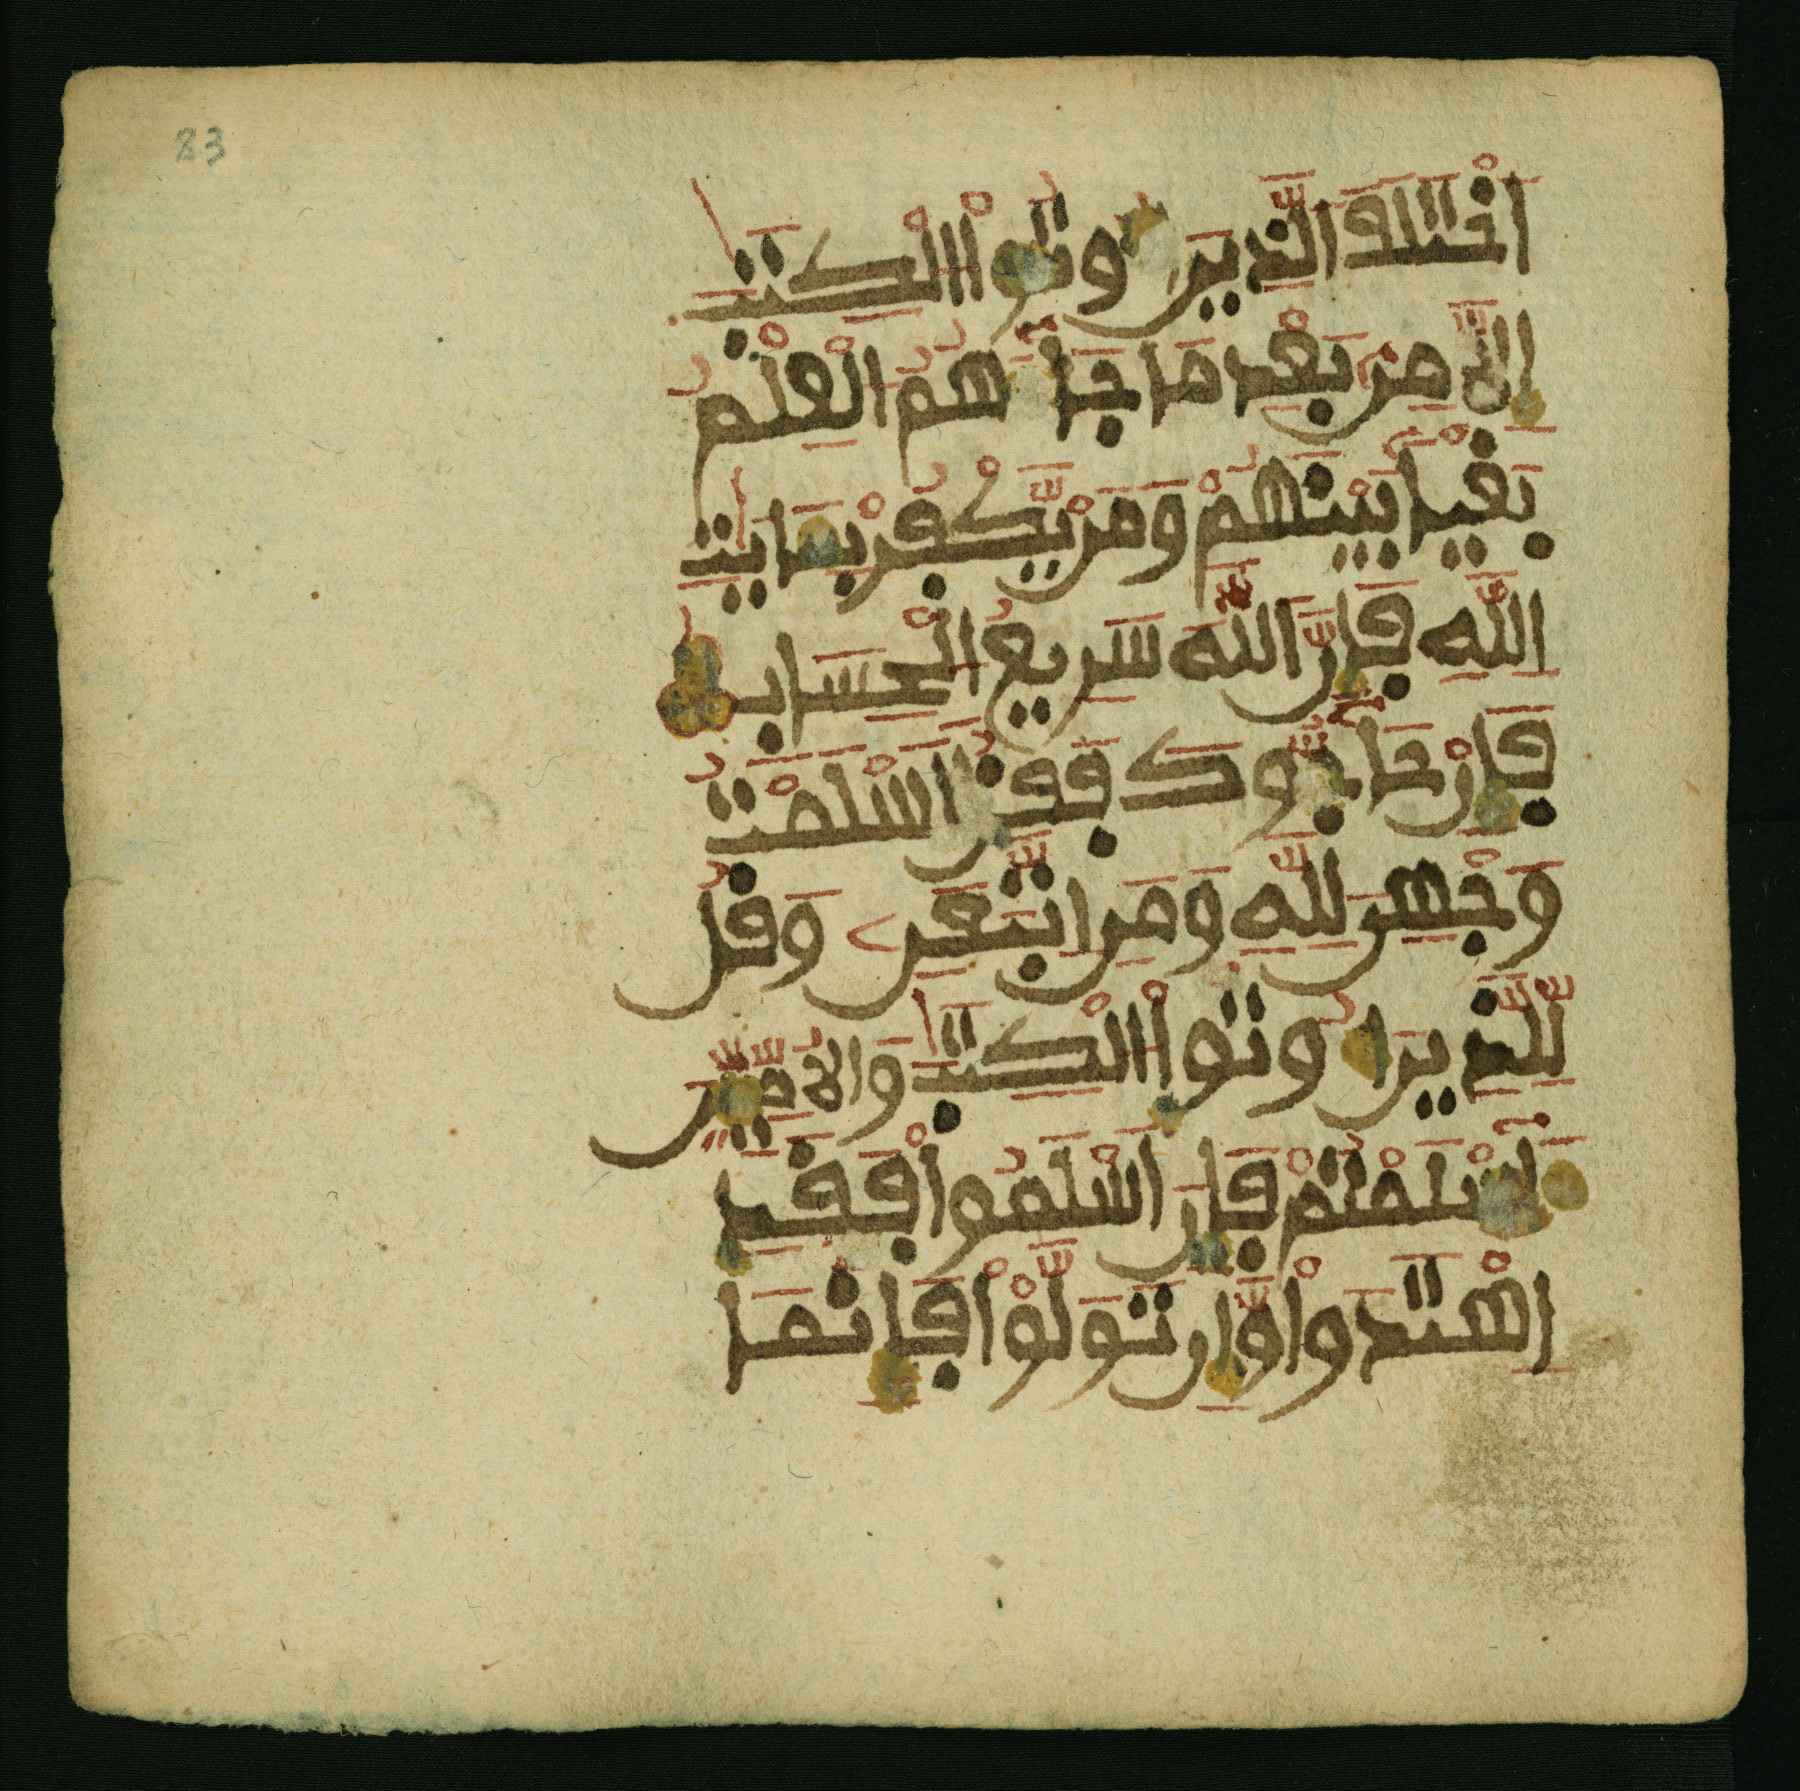 83
اخْتَلَفَ الَّذِينَ أُوتُواْ الْكِتَٰبَ
إِلَّا مِنۢ بَعْدِ مَا جَآءَهُمُ الْعِلْمُ
بَغْيَاۢ بَيْنَهُمْ وَمَنْ يَّكْفُرْ بِـَٔايَٰتِ
اللَّهِ فَإِنَّ اللَّهَ سَرِيعُ الْحِسَابِ
فَإِنْ حَآجُّوكَ فَقُلَ اَسْلَمْتُ
وَجْهِيَ لِلَّهِ وَمَنِ اتَّبَعَنِ وَقُل
لِّلَّذِينَ أُوتُواْ الْكِتَٰبَ وَالُامِّيِّينَ
ءَآسْلَمْتُمْ فَإِنَ اَسْلَمُواْ فَقَدِ
اِهْتَدَواْ وَّإِن تَوَلَّوْاْ فَإِنَّمَا